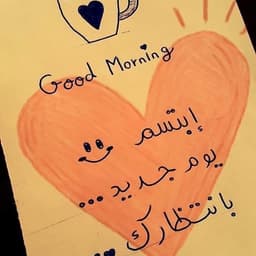 Good Morning
إبتسم
يوم جديد ...
بانتظارك ..